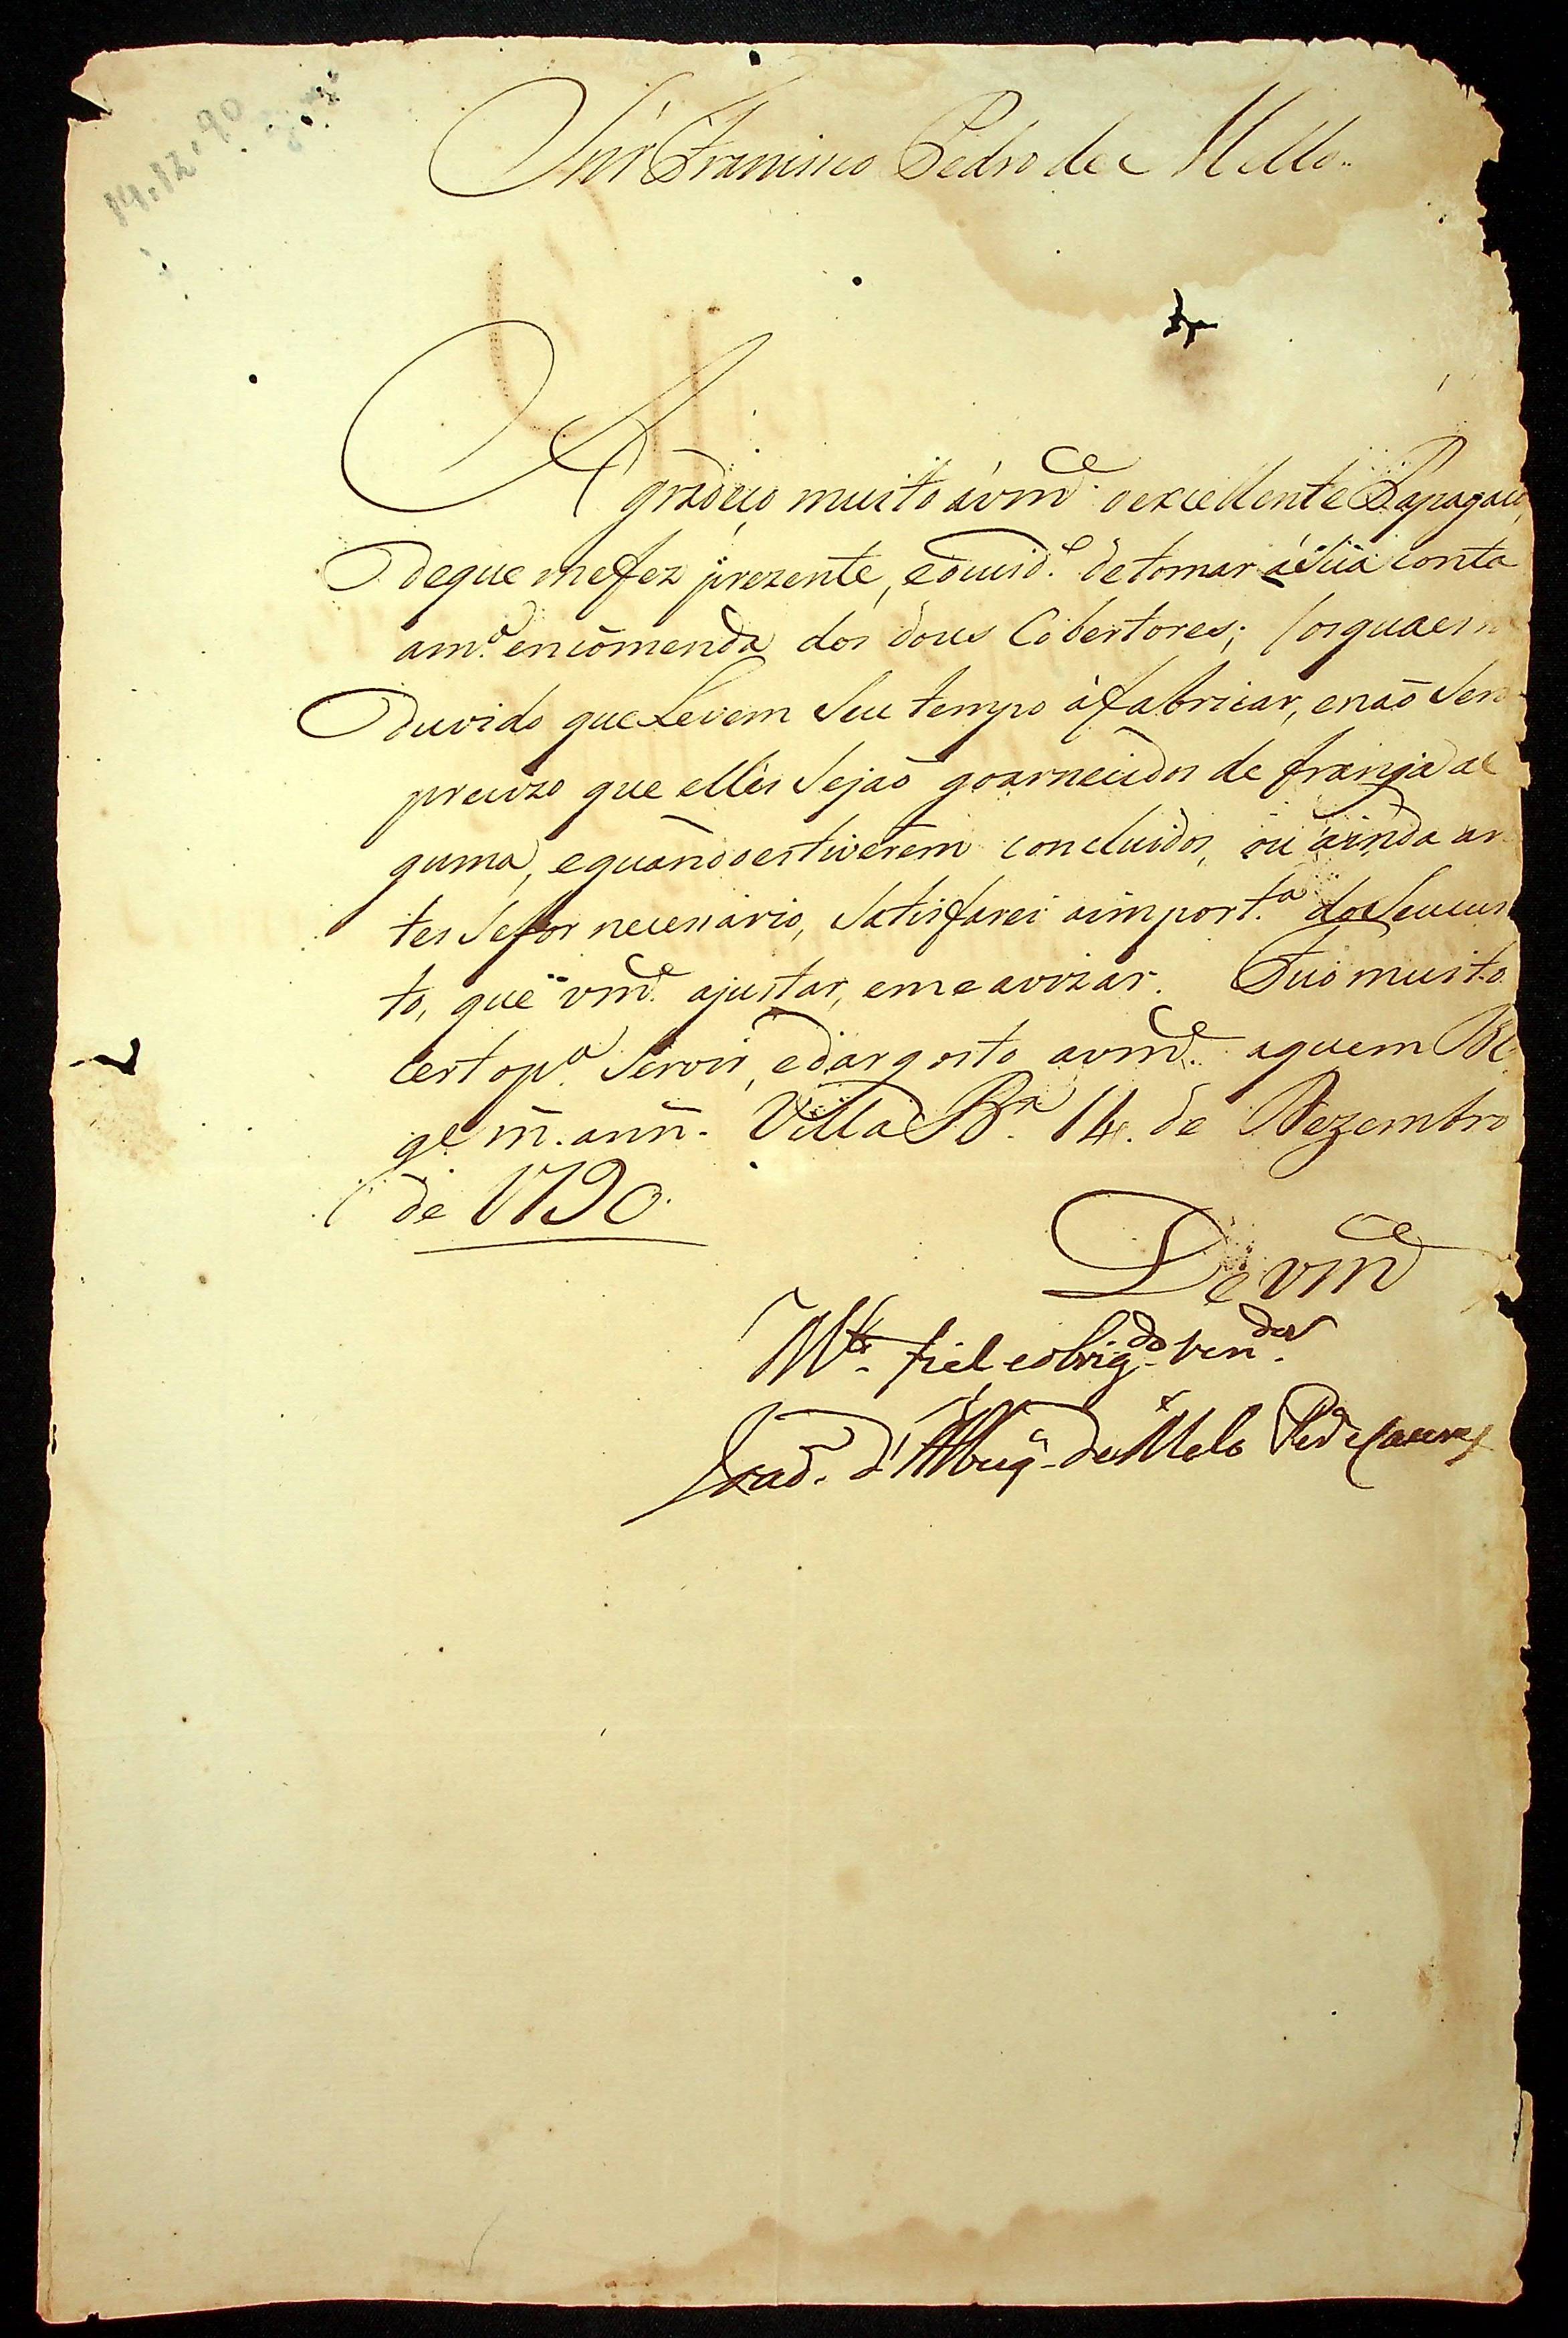 14.12.90
Snr. Francisco Pedro de Mello..
Agradeço muito avm.ce o excellente Papagaio,
deque mefez prezente, eocuid.o detomar ásua conta
am.a encõmenda dos dous Cobertores; (osquaes n
duvido que Levem Seu tempo àfabricar, enaõ Sen
precizo que elles Sejaõ goarnecidos de franja al
guma, equandoestiverem concluidos, ou ainda an
tes Sefor necessario, Satisfarei aimport.a doSeucus
to, que vm.ce ajustar, emeavizar. Fico muito
certop.a Servir, edargosto avm.ce aquem D.
g.e m. ann. Villa B.a 14. de Dezembro
de 1790.
De vm.ce
M.to fiel eobrig.do ven.dor
Joaõ. d'Albuq.e deMelo Per.a Caceres